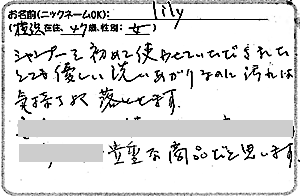 お名前(ニックネームOK): lily
(横浜在住、47歳、性別: 女)
シャンプーを初めて使わせていただきました
とても優しい洗いあがりなのに汚れは
気持ちよく落とせます。
貴重な商品だと思います。